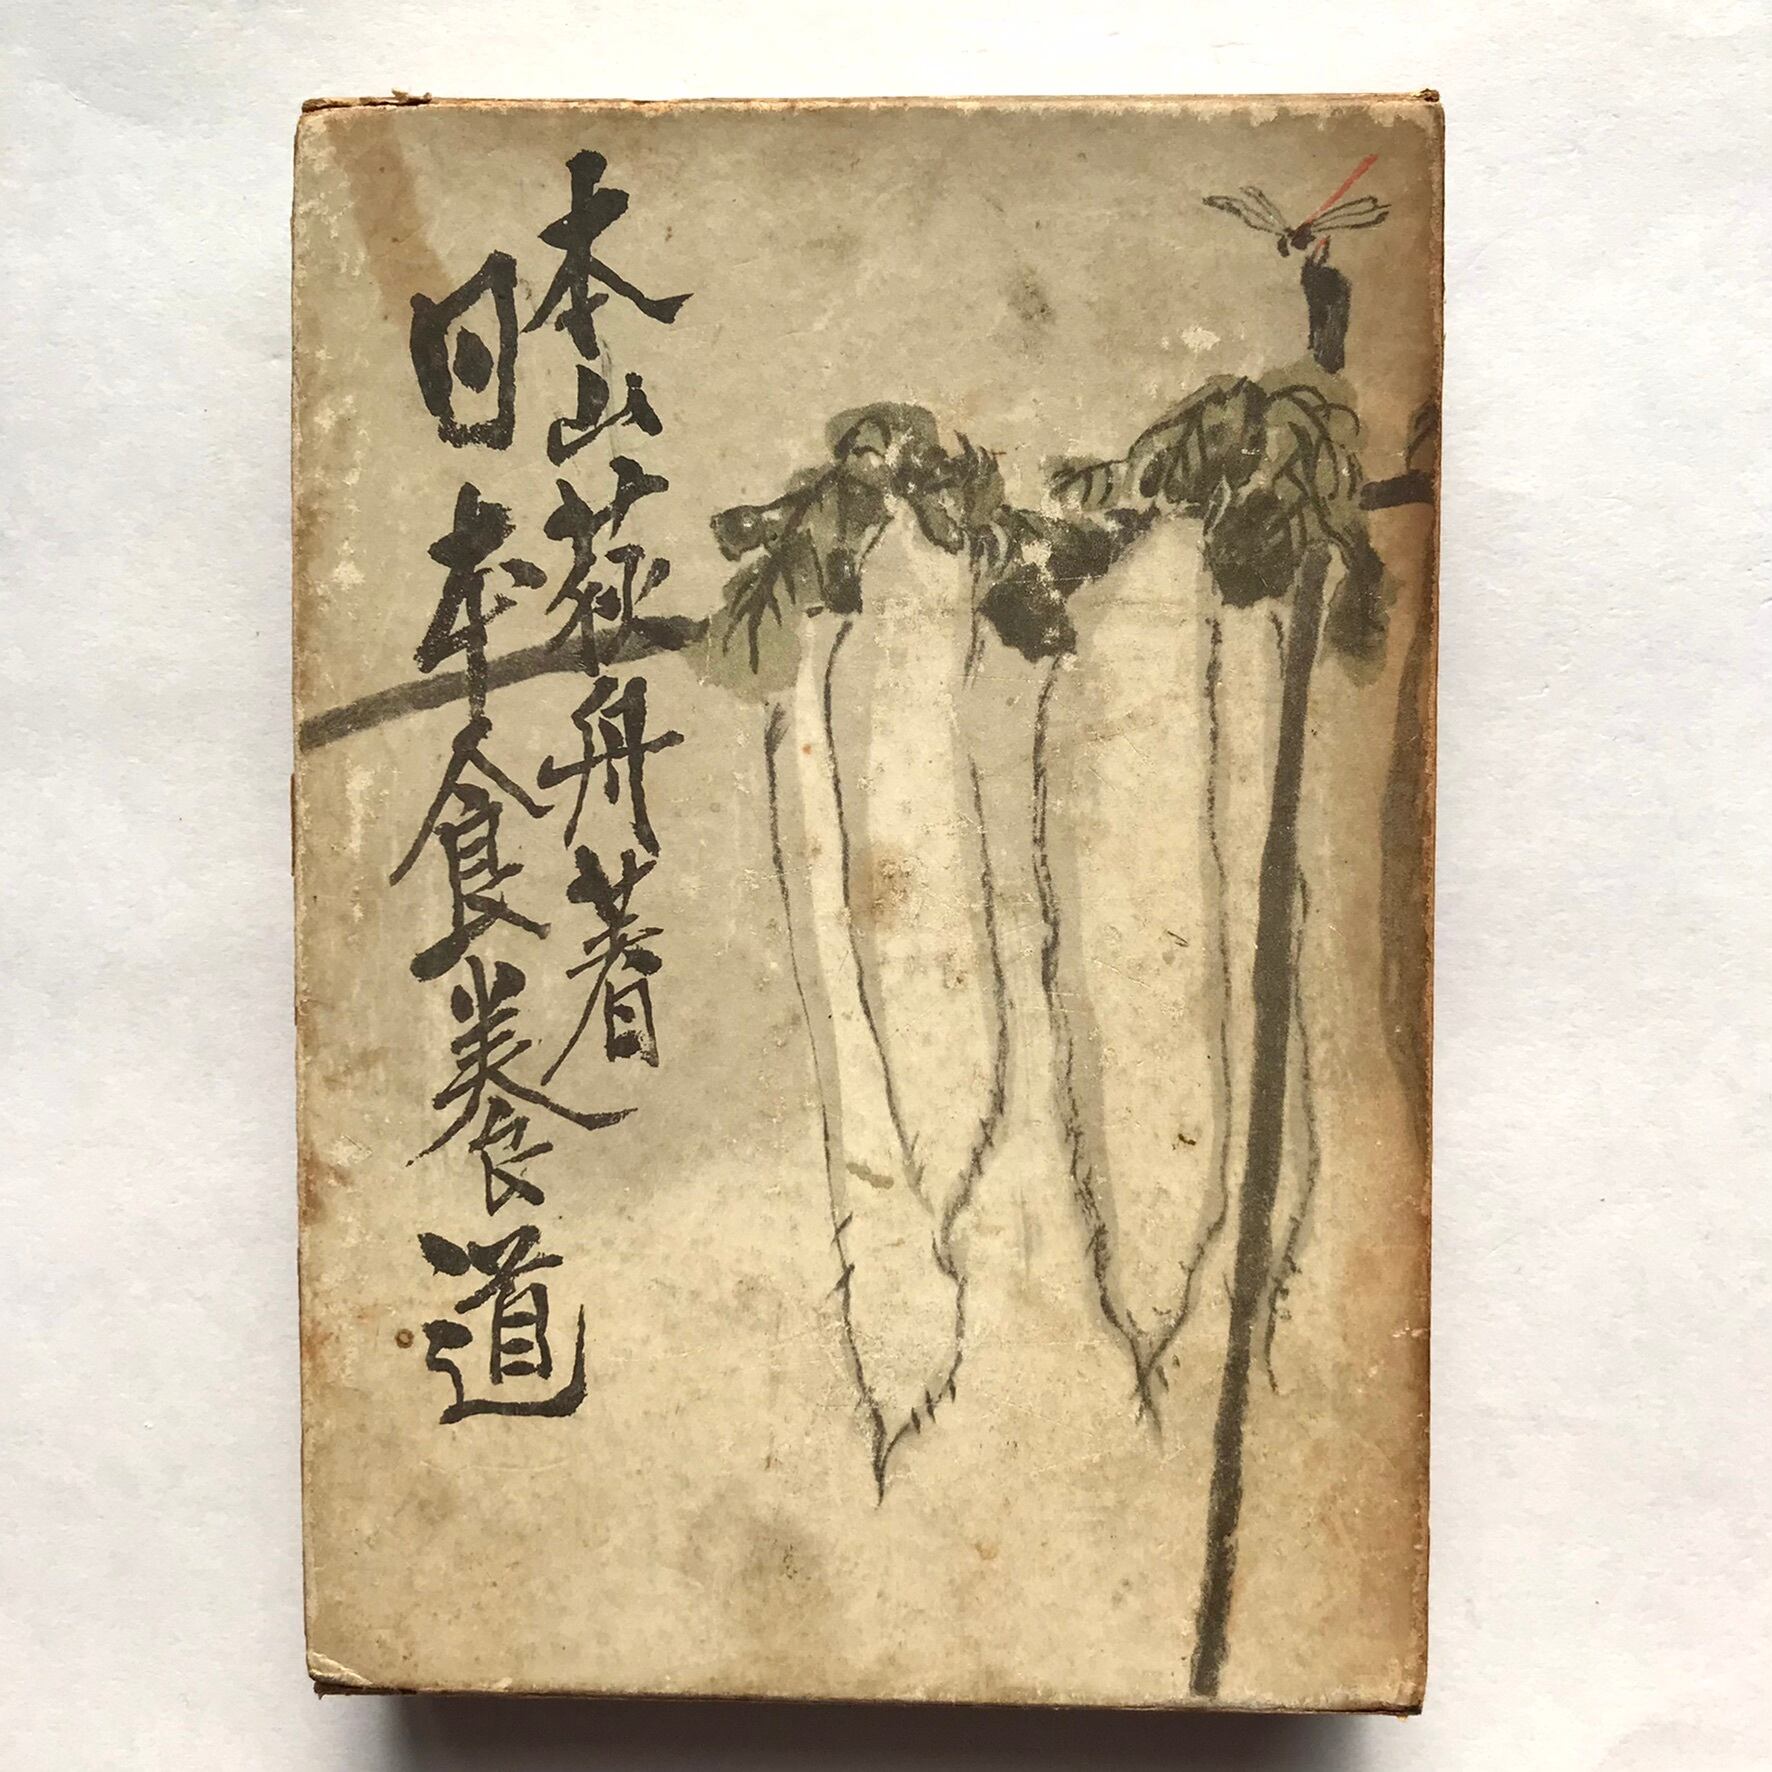 本山荻舟著
日本食養道